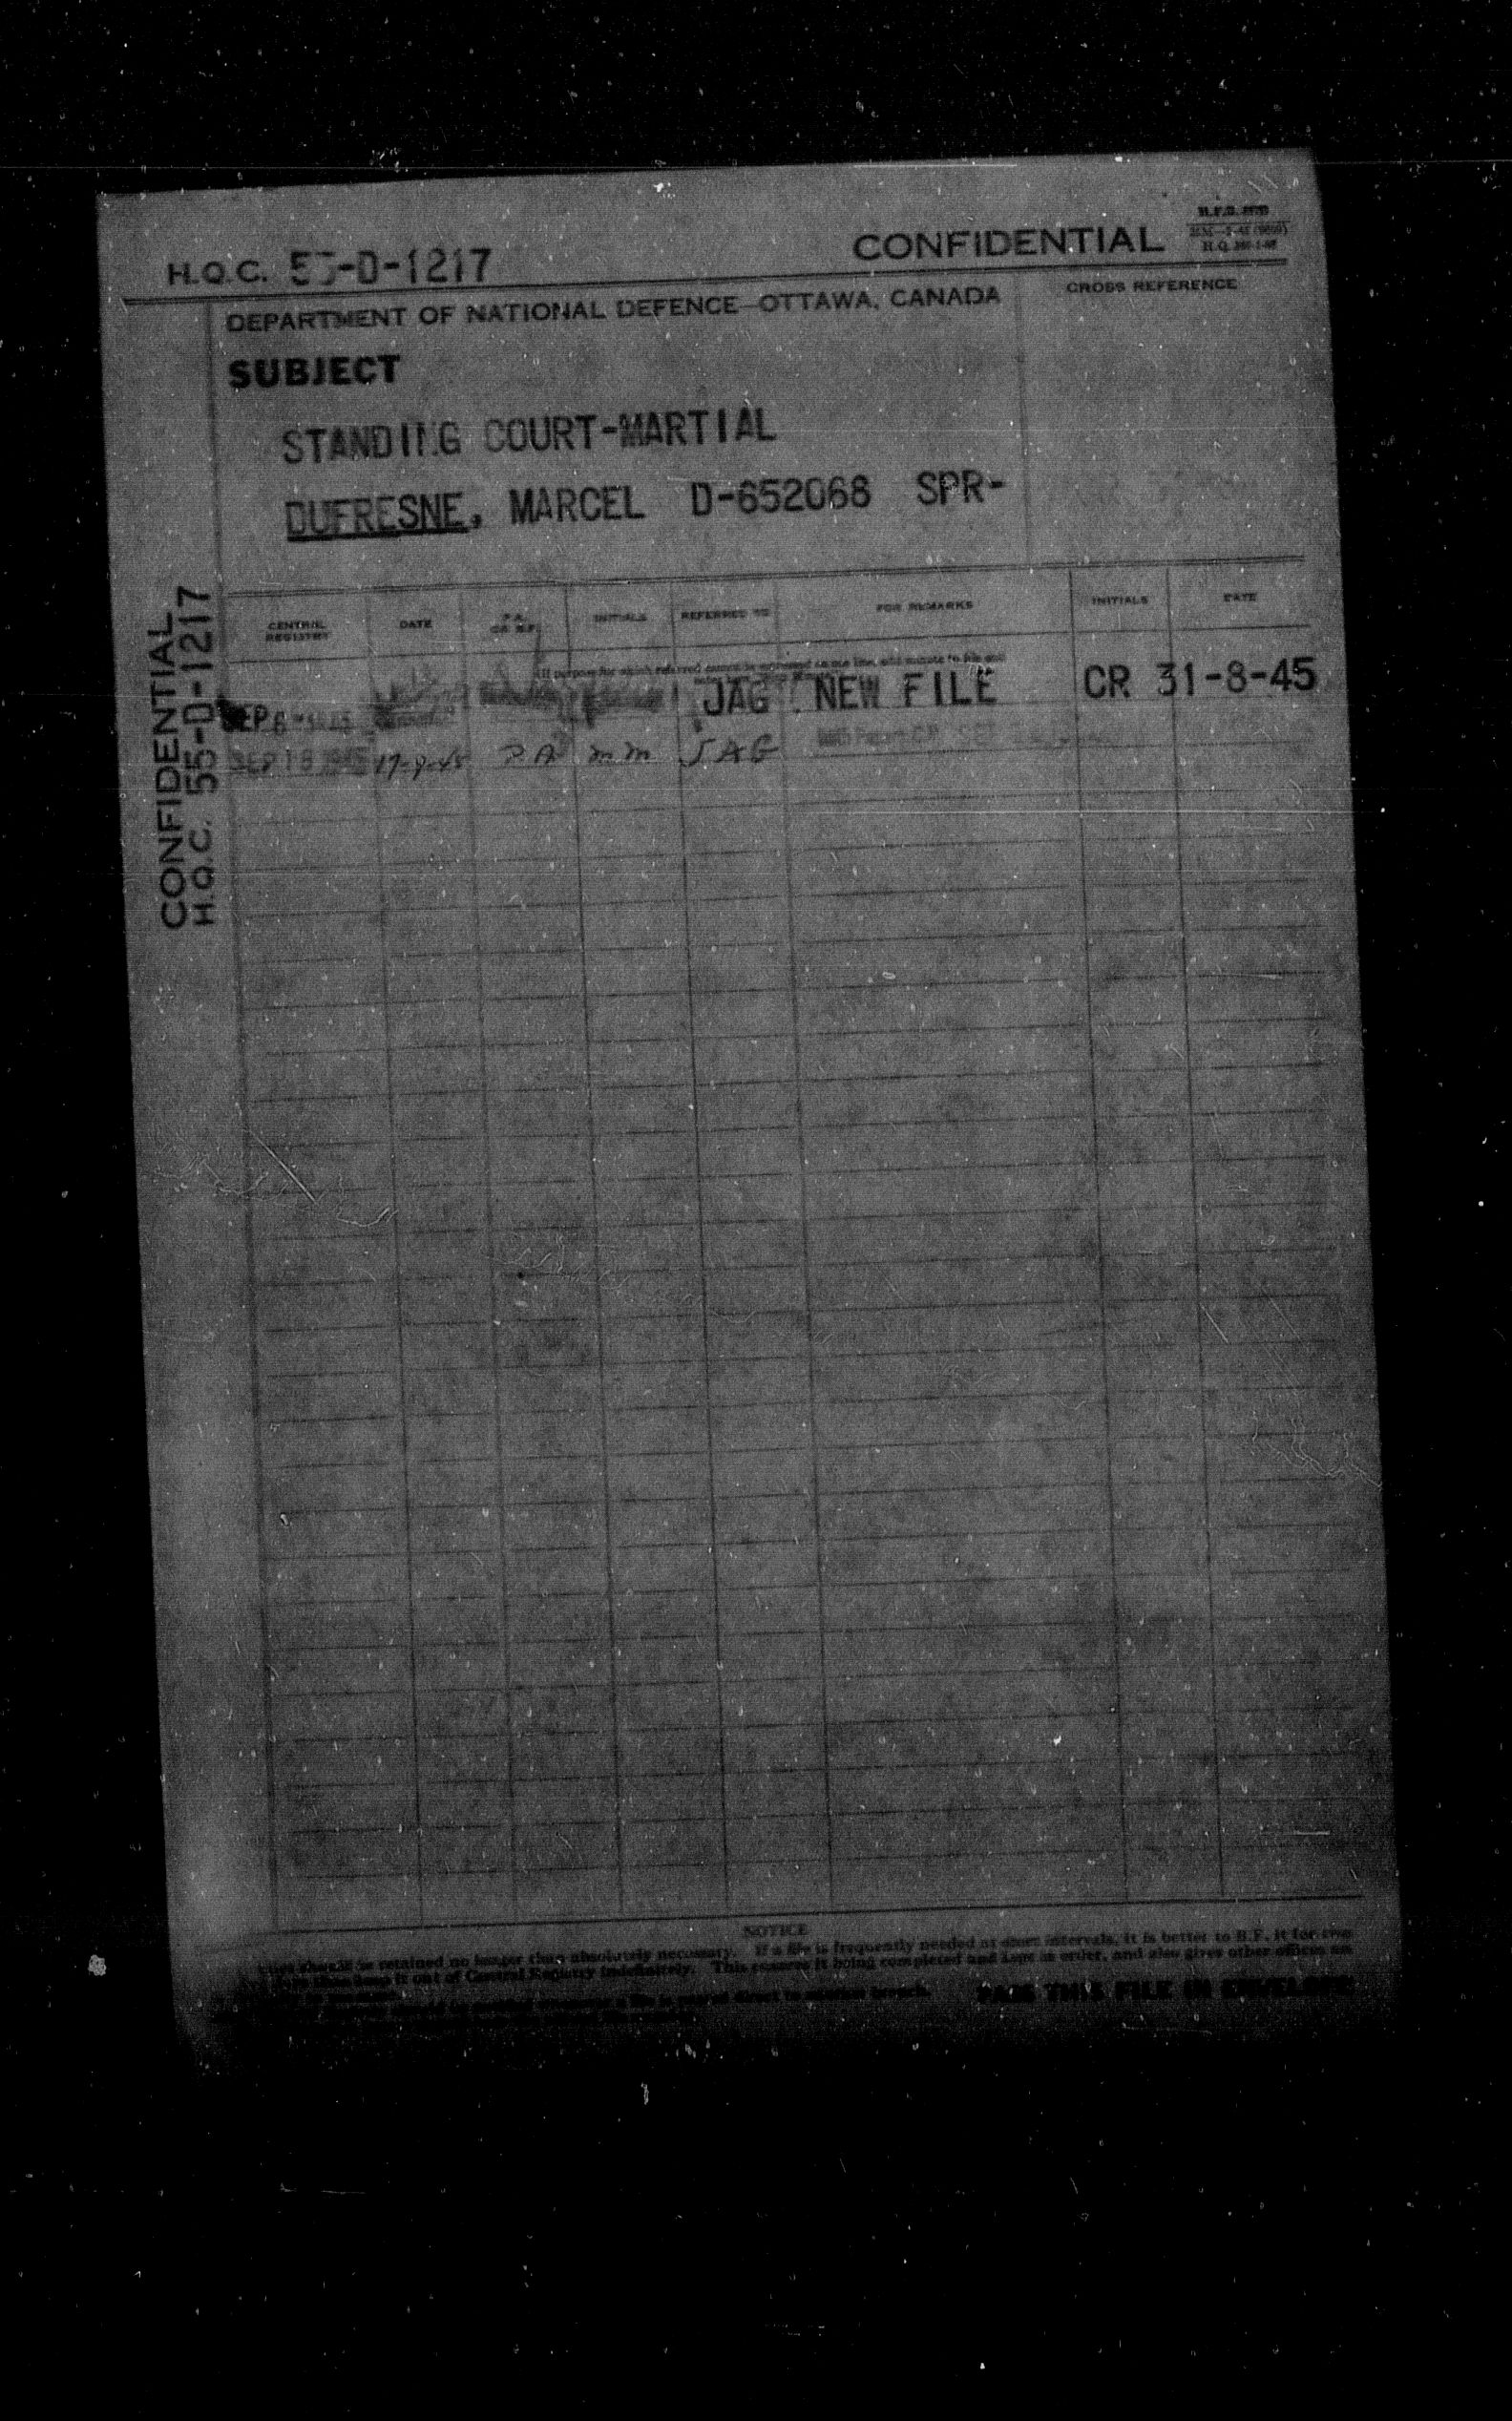 H.Q.C. 55-D-1217
CONFIDENTIAL
DEPARTMENT OF NATIONAL DEFENCE—OTTAWA, CANADA
CROSS REFERENCE
SUBJECT
STANDING COURT-MARTIAL
DUFRESNE, MARCEL D-652068 SPR-
CONFIDENTIAL
H.Q.C. 55-D-1217
CENTRAL REGISTRY DATE P.A. OR B.F. INITIALS REFERRED TO FOR REMARKS INITIALS DATE
SEP 6 JAG NEW FILE CR 31-8-45
SEP 18 17-9-45 PA mm JAG
NOTICE
should be retained no longer than absolutely necessary. If a file is frequently needed at short intervals, it is better to B.F. it for
than keep it out of Central Registry indefinitely. This ensures it being completed and kept in order, and also gives other offices an
direct to another branch. PASS THIS FILE IN ENVELOPE